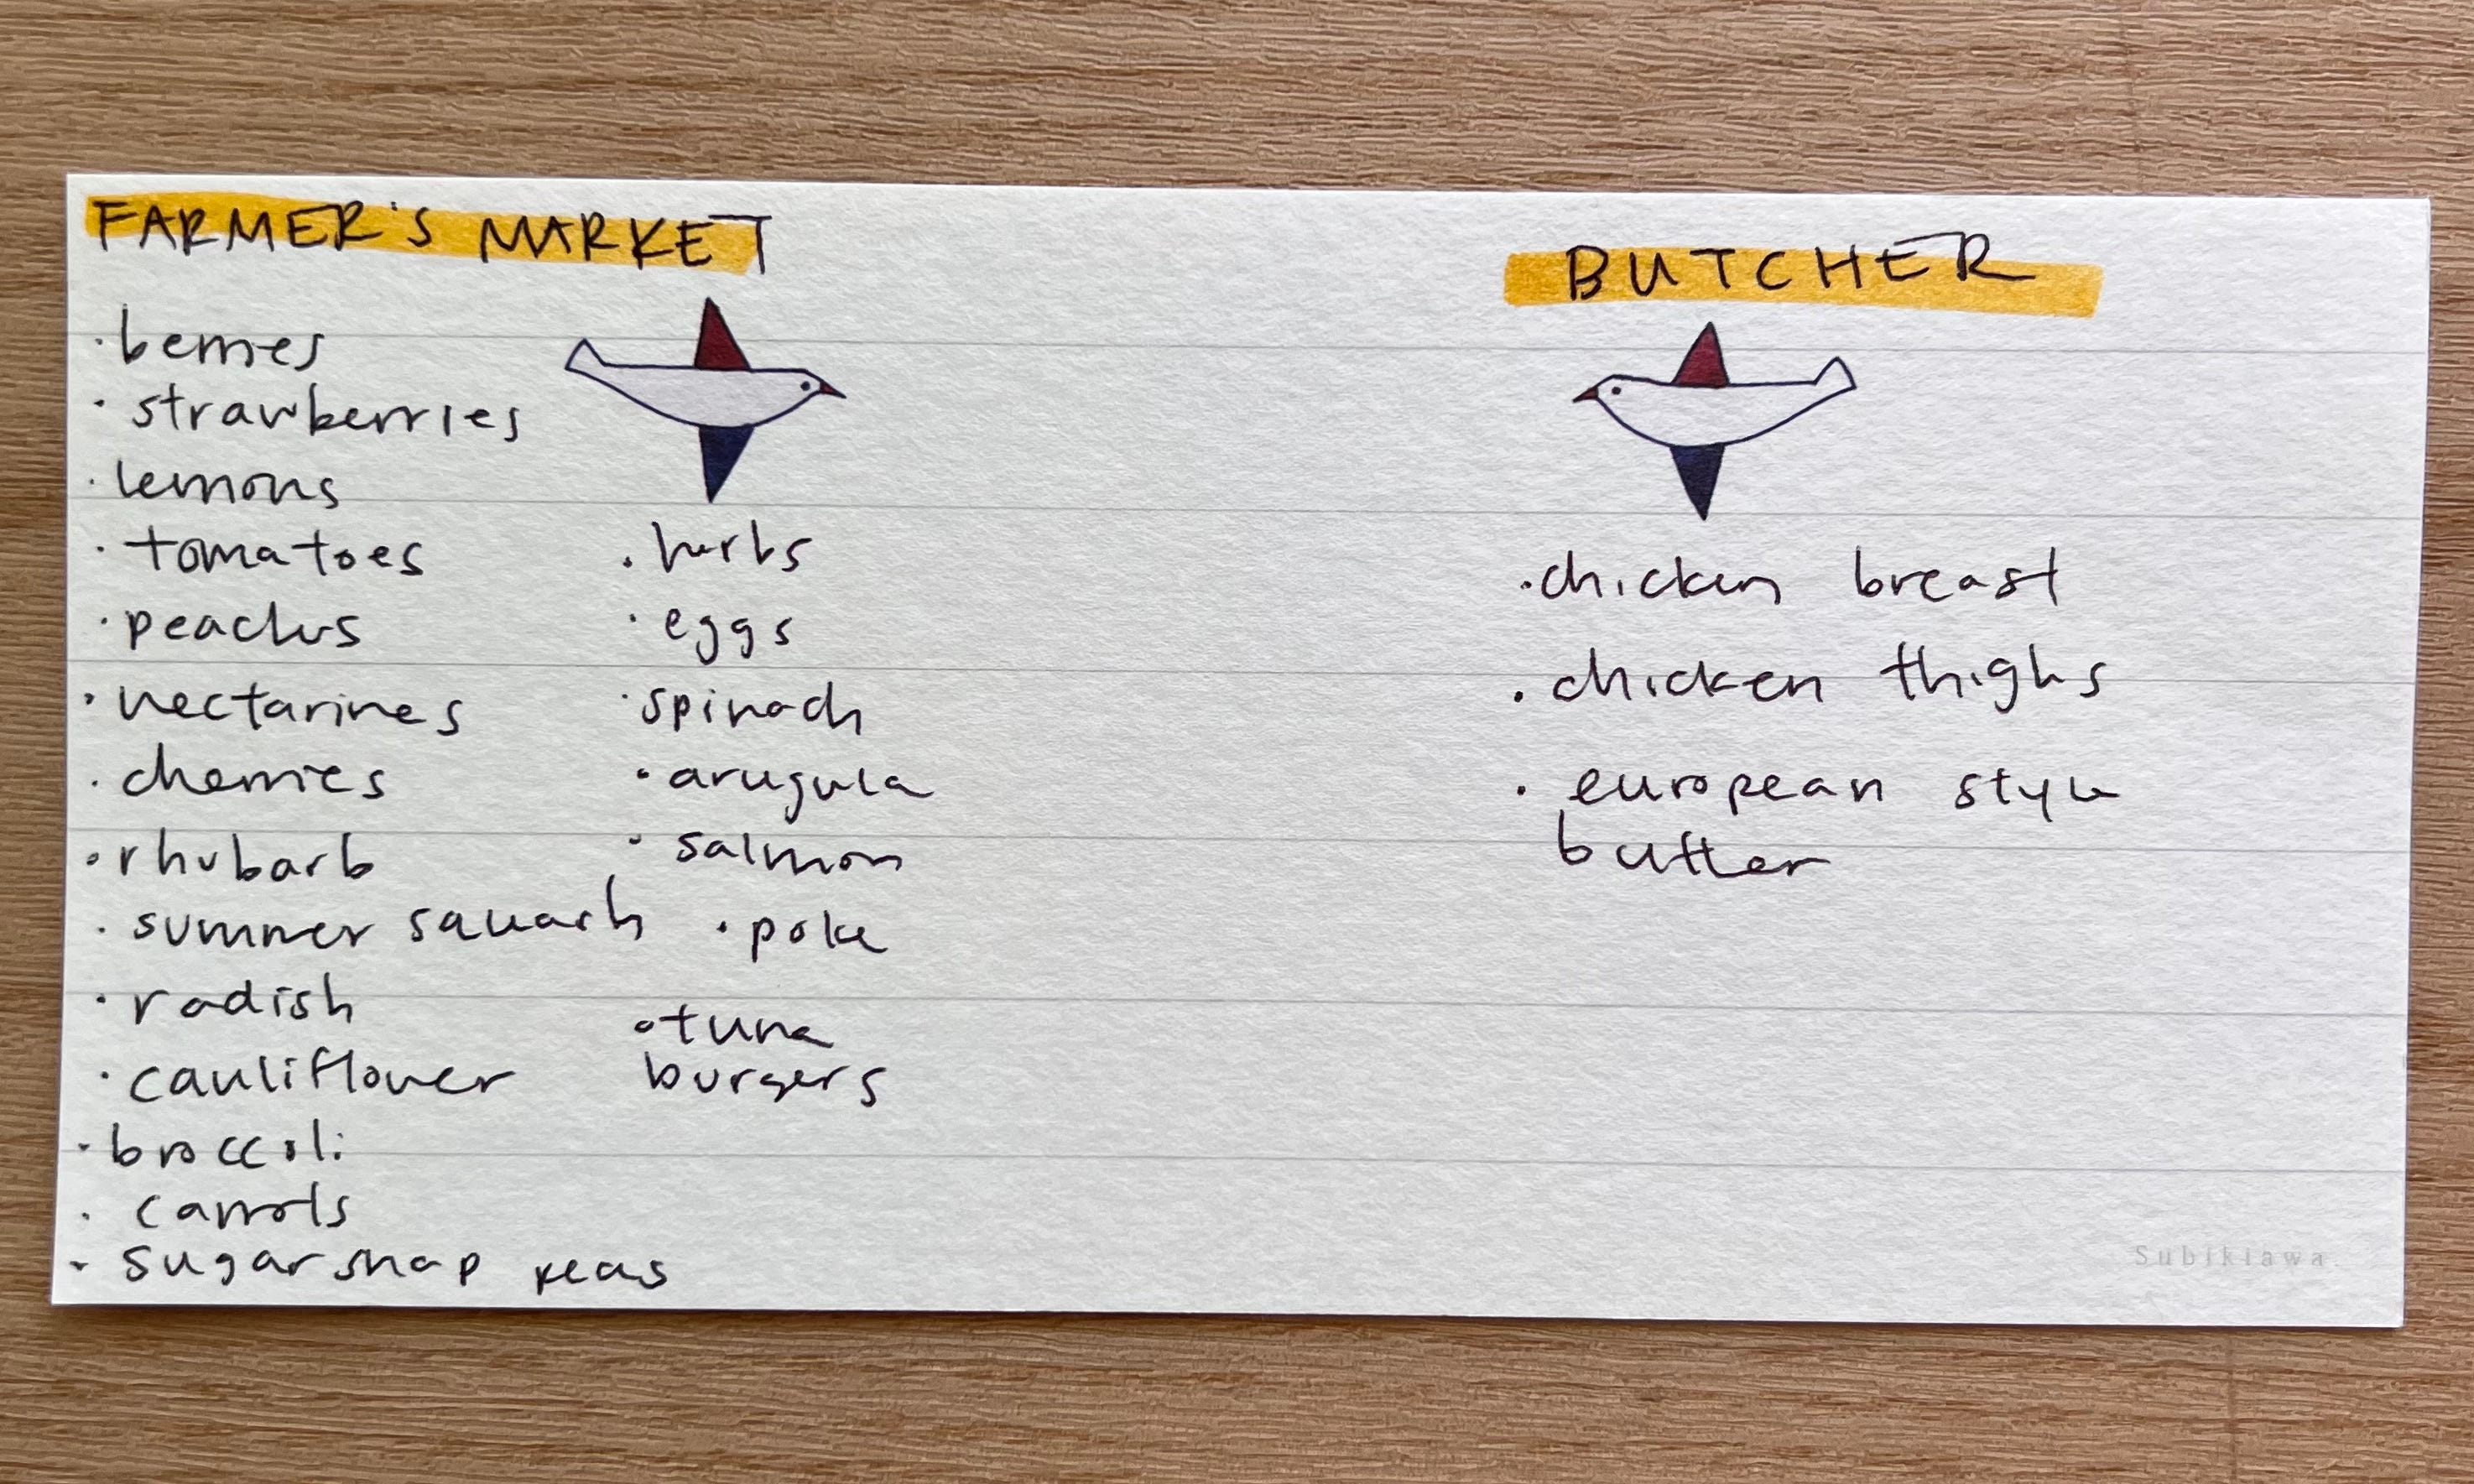 FARMER'S MARKET
· berries
· strawberries
· lemons
· tomatoes
· peaches
· nectarines
· cherries
· rhubarb
· summer squash
· radish
· cauliflower
· broccoli
· carrots
· sugar snap peas
· herbs
· eggs
· spinach
· arugula
· salmon
· poke
· tuna
burgers
BUTCHER
· chicken breast
· chicken thighs
· european style
butter
Subikiawa.